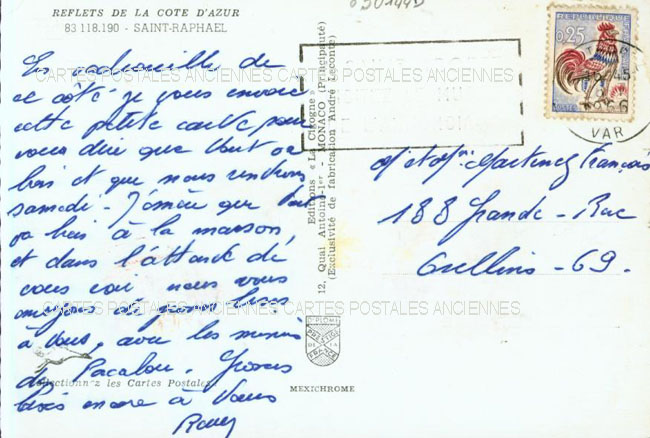 REFLETS DE LA COTE D'AZUR
83 118.190 - SAINT-RAPHAEL
En vadrouille de
ce côté je vous envoie
cette petite carte pour
vous dire que tout va
bien et que nous rentrons
samedi. J'espère que tout
va bien à la maison,
et dans l'attente de
vous voir nous vous
gros bises
à tous, avec les mimis
de Pacalou. Grosses
bises encore à Vous
CARTES POSTALES ANCIENNES CARTES POSTALES ANCIENNES
CARTES POSTALES ANCIENNES CARTES POSTALES ANCIENNES
Collectionnez les Cartes Postales
Editions « La Cigogne »
12, Quai Antoine-1er - MONACO (Principauté)
(Exclusivité de fabrication André Leconte)
DIPLOME
PRESTIGE
DE LA
FRANCE
MEXICHROME
0,25
REPUBLIQUE FRANCAISE
POSTES
1966
VAR
Martinez François
188 Grande-Rue
Oullins - 69.